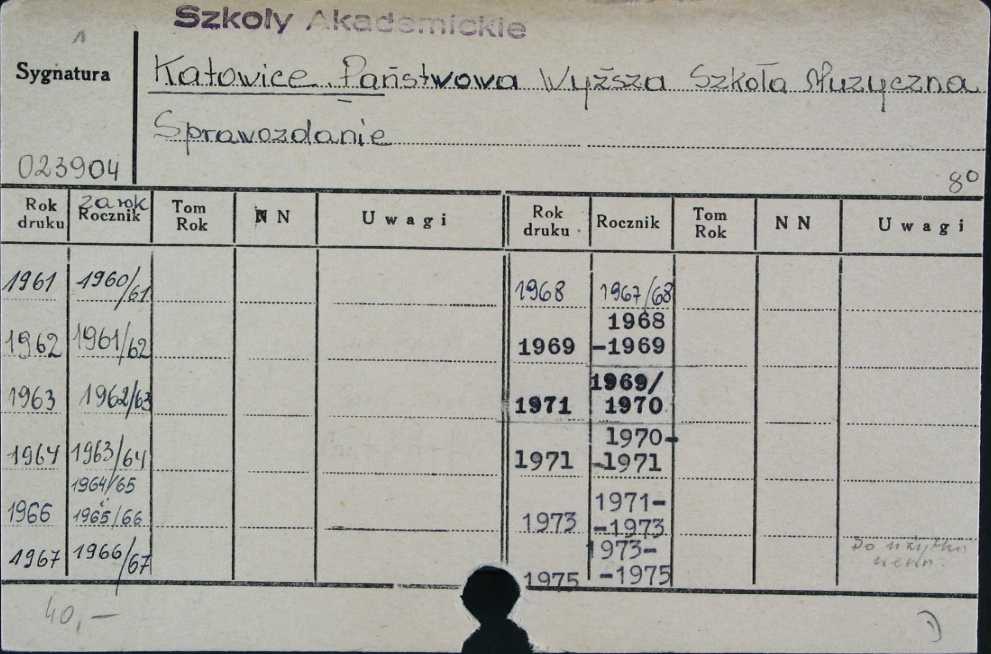 Szkoły Akademickie
1
Sygnatura
Katowice. Państwowa Wyższa Szkoła Muzyczna
Sprawozdanie
023904
8°
Rok druku | za rok Rocznik | Tom Rok | N N | Uwagi | Rok druku | Rocznik | Tom Rok | N N | Uwagi
1961 | 1960/61 | 1968 | 1967/68
1962 | 1961/62 | 1969 | 1968-1969
1963 | 1962/63 | 1971 | 1969/1970
1964 | 1963/64 | 1971 | 1970--1971
1966 | 1964/65 i 1965/66 | 1973 | 1971--1973
1967 | 1966/67 | 1975 | 1973--1975 | Do użytku wewn.
40,-